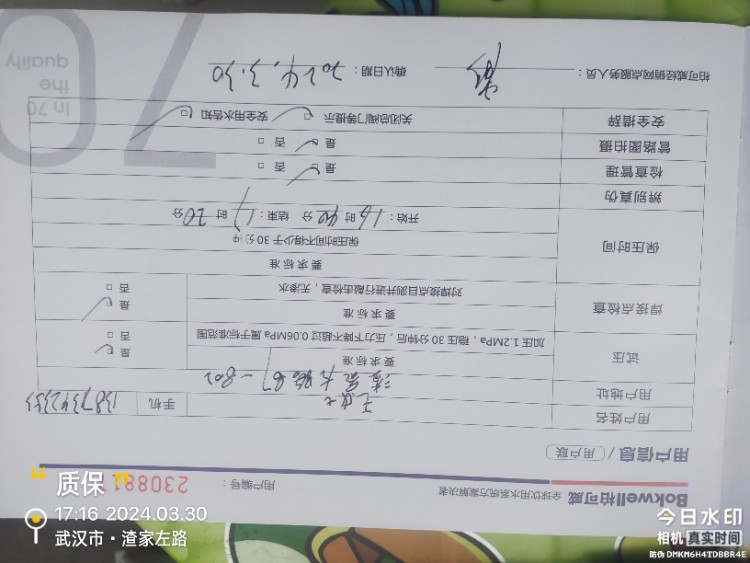 Bokwell柏可威 全球饮用水系统方案解决者
用户编号： 2308817
用户信息 /（用户联）
用户姓名 手机
用户地址
试压 要求标准 是
加压1.2MPa，稳压，30分钟后，压力下降不超过0.06MPa属于标准范围 否
焊接点检查 要求标准 是
对焊接点目测并进行敲击检查，无渗水 否
保压时间 要求标准
保压时间不得少于30分钟
开始：16时40分 结束：17时20分
辨别真伪
检查管理 是 否
管路图拍摄 是 否
安全措辞 关闭总阀门等提示 安全用水告知
柏可威经销网点服务人员： 确认日期：2024.3.30
In 70
the
quality
70
质保
17:16 2024.03.30
武汉市·渣家左路
今日水印
相机 真实时间
防伪 DMKM6H4TDBBR4E